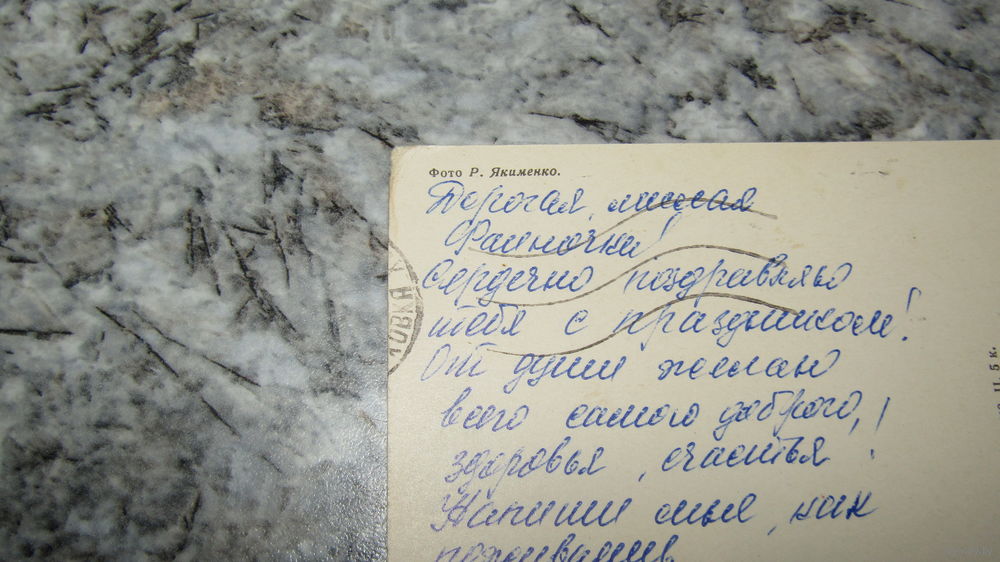 Фото Р. Якименко.
Дорогая, милая
Фаиночка!
Сердечно поздравляю
тебя с праздником!
От души желаю
всего самого доброго,
здоровья, счастья!
Напиши мне, как
поживаешь
ОВКА
Ц. 5 к.